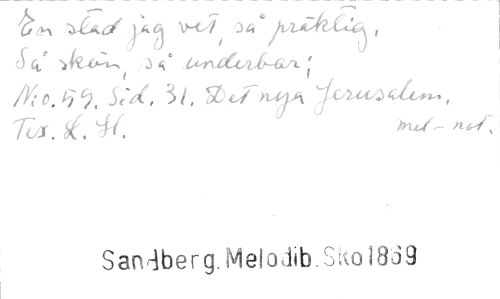 En stad jag vet, så präktig,
Så skön, så underbar;
N:o. 59. Sid. 31. Det nya Jerusalem.
Tex. L. H. mel-not.
Sandberg. Melodib. Sko 1869